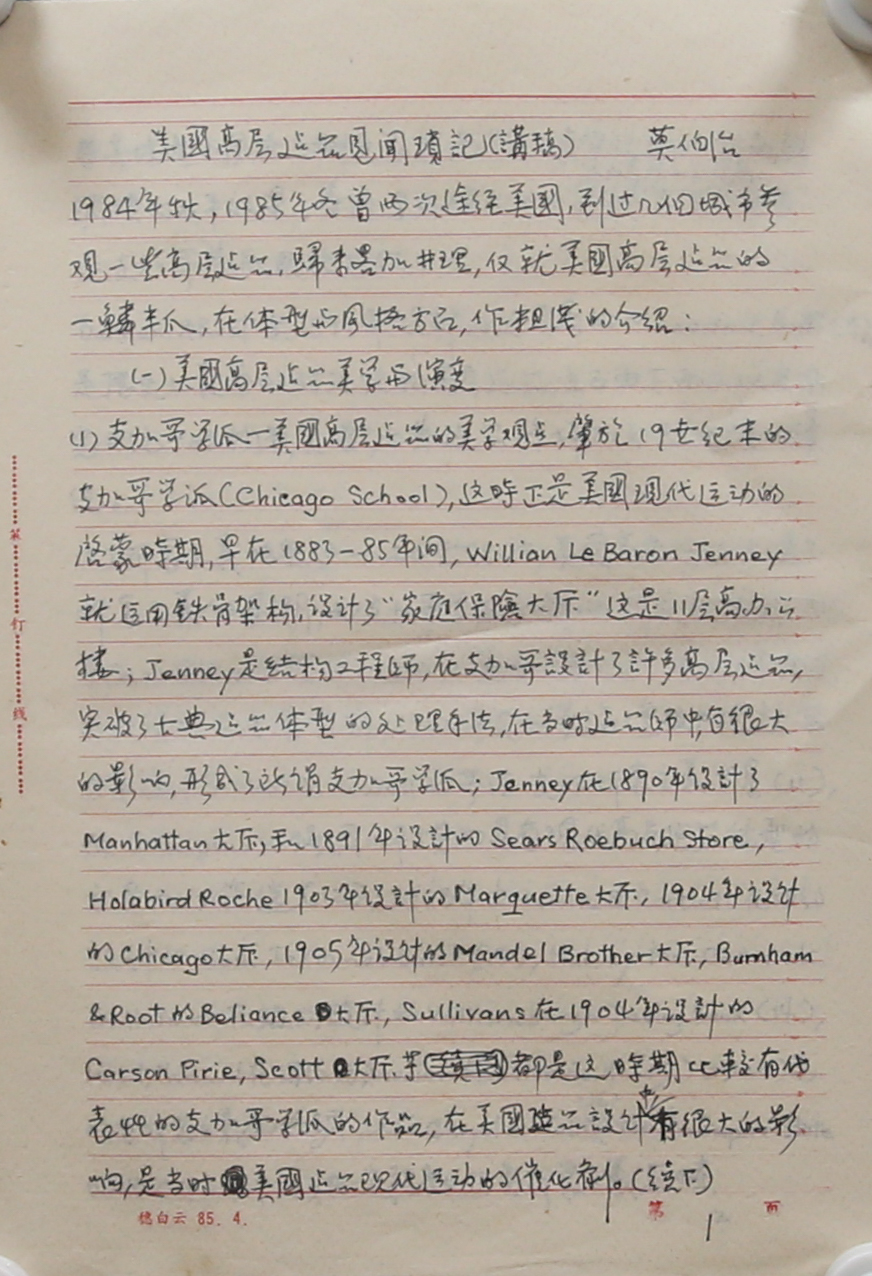 美國高层建筑見闻瑣記(講稿) 莫伯治
1984年秋,1985年冬曾两次途经美國,到过几個城市参
观一些高层建筑,歸来畧加井理,仅就美國高层建筑的
一鳞半爪,在体型与風格方面,作粗浅的介绍:
(一)美國高层建筑美学与演变
(1)支加哥学派—美國高层建筑的美学观点,肇於19世纪末的
支加哥学派(Chicago School),这時正是美國现代运动的
啓蒙時期,早在1883-85年间,Willian Le Baron Jenney
就运用铁骨架构,设计了"家庭保險大厦"这是11层高办公
楼;Jenney是结构工程师,在支加哥設計了許多高层建筑,
突破了古典建筑体型的处理手法,在当时建筑师中,有很大
的影响,形成了所谓支加哥学派;Jenney在1890年设計了
Manhattan大厦,和1891年设計的Sears Roebuch Store,
Holabird Roche 1903年设計的Marquette大厦,1904年设计
的Chicago大厦,1905年设计的Mandel Brother大厦,Burnham
&Root的Beliance大厦,Sullivans在1904年设計的
Carson Pirie, Scott大厦等都是这時期比較有代
表性的支加哥学派的作品,在美國建筑設计上有很大的影
响,是当时美國建筑现代运动的催化剂。(续下)
装
钉
线
穗白云 85.4.
第 1 页